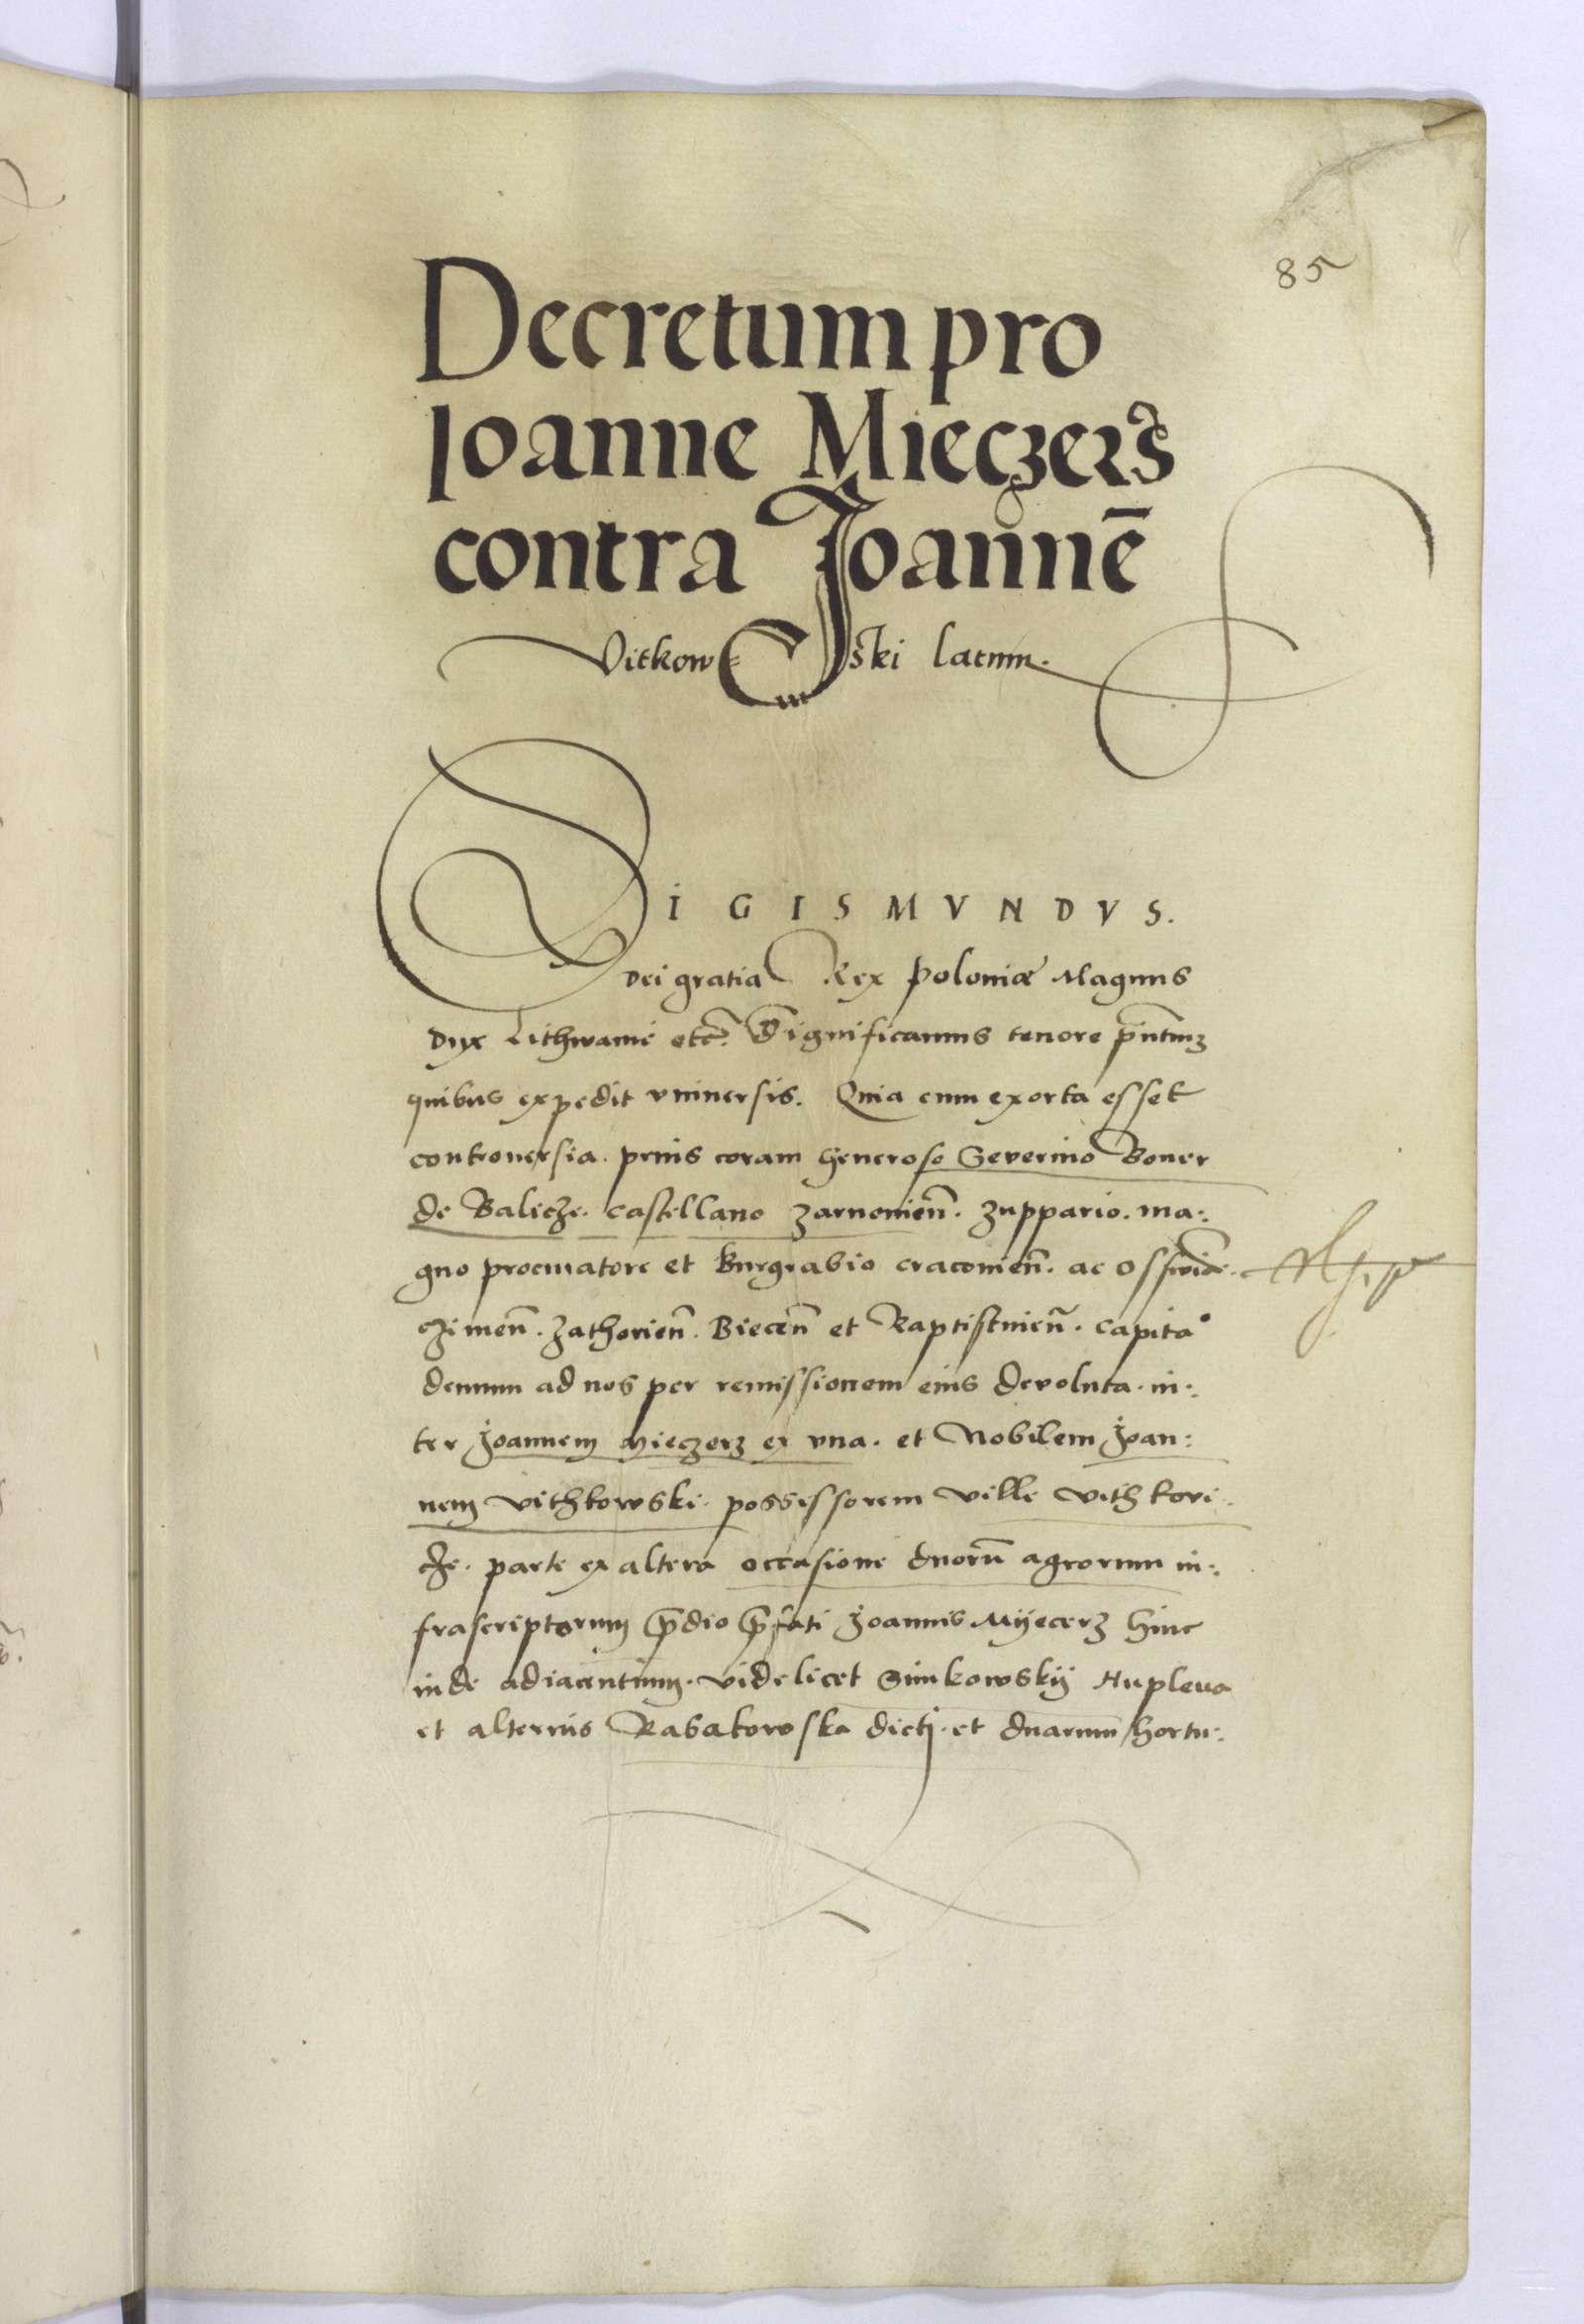 85
Decretum pro
Joanne Mieczerz
contra Joannē
Vitkow= ski latum.
SIGISMVNDVS.
Dei gratia Rex Poloniæ Magnus
Dux Lithwanie etc̃. Significamus tenore pñtium
quibus expedit vniuersis. Quia cum exorta esset
controuersia. prius coram Generoso Seuerino Boner
de Balicze. castellano Zarnouień. Zuppario. ma:
gno procuratore et Burgrabio cracouień. ac Osswiē
czimeñ. Zathorień. Bieceñ et Raptistnień. capita°
demum ad nos per remissionem eius devoluta. in:
ter Joannem Mieczerz ex vna. et Nobilem Joan:
nem Vithkowski. possessorem ville Vithkovi.
cze. parte ex altera occasione duorū agrorum in:
frascriptorum p̄dio p̄fati Joannis Mijecerz hinc
inde adiacentium. videlicet Simkowskij Hupleva
et alterius Rabakowska dicti. et duarum hortu: